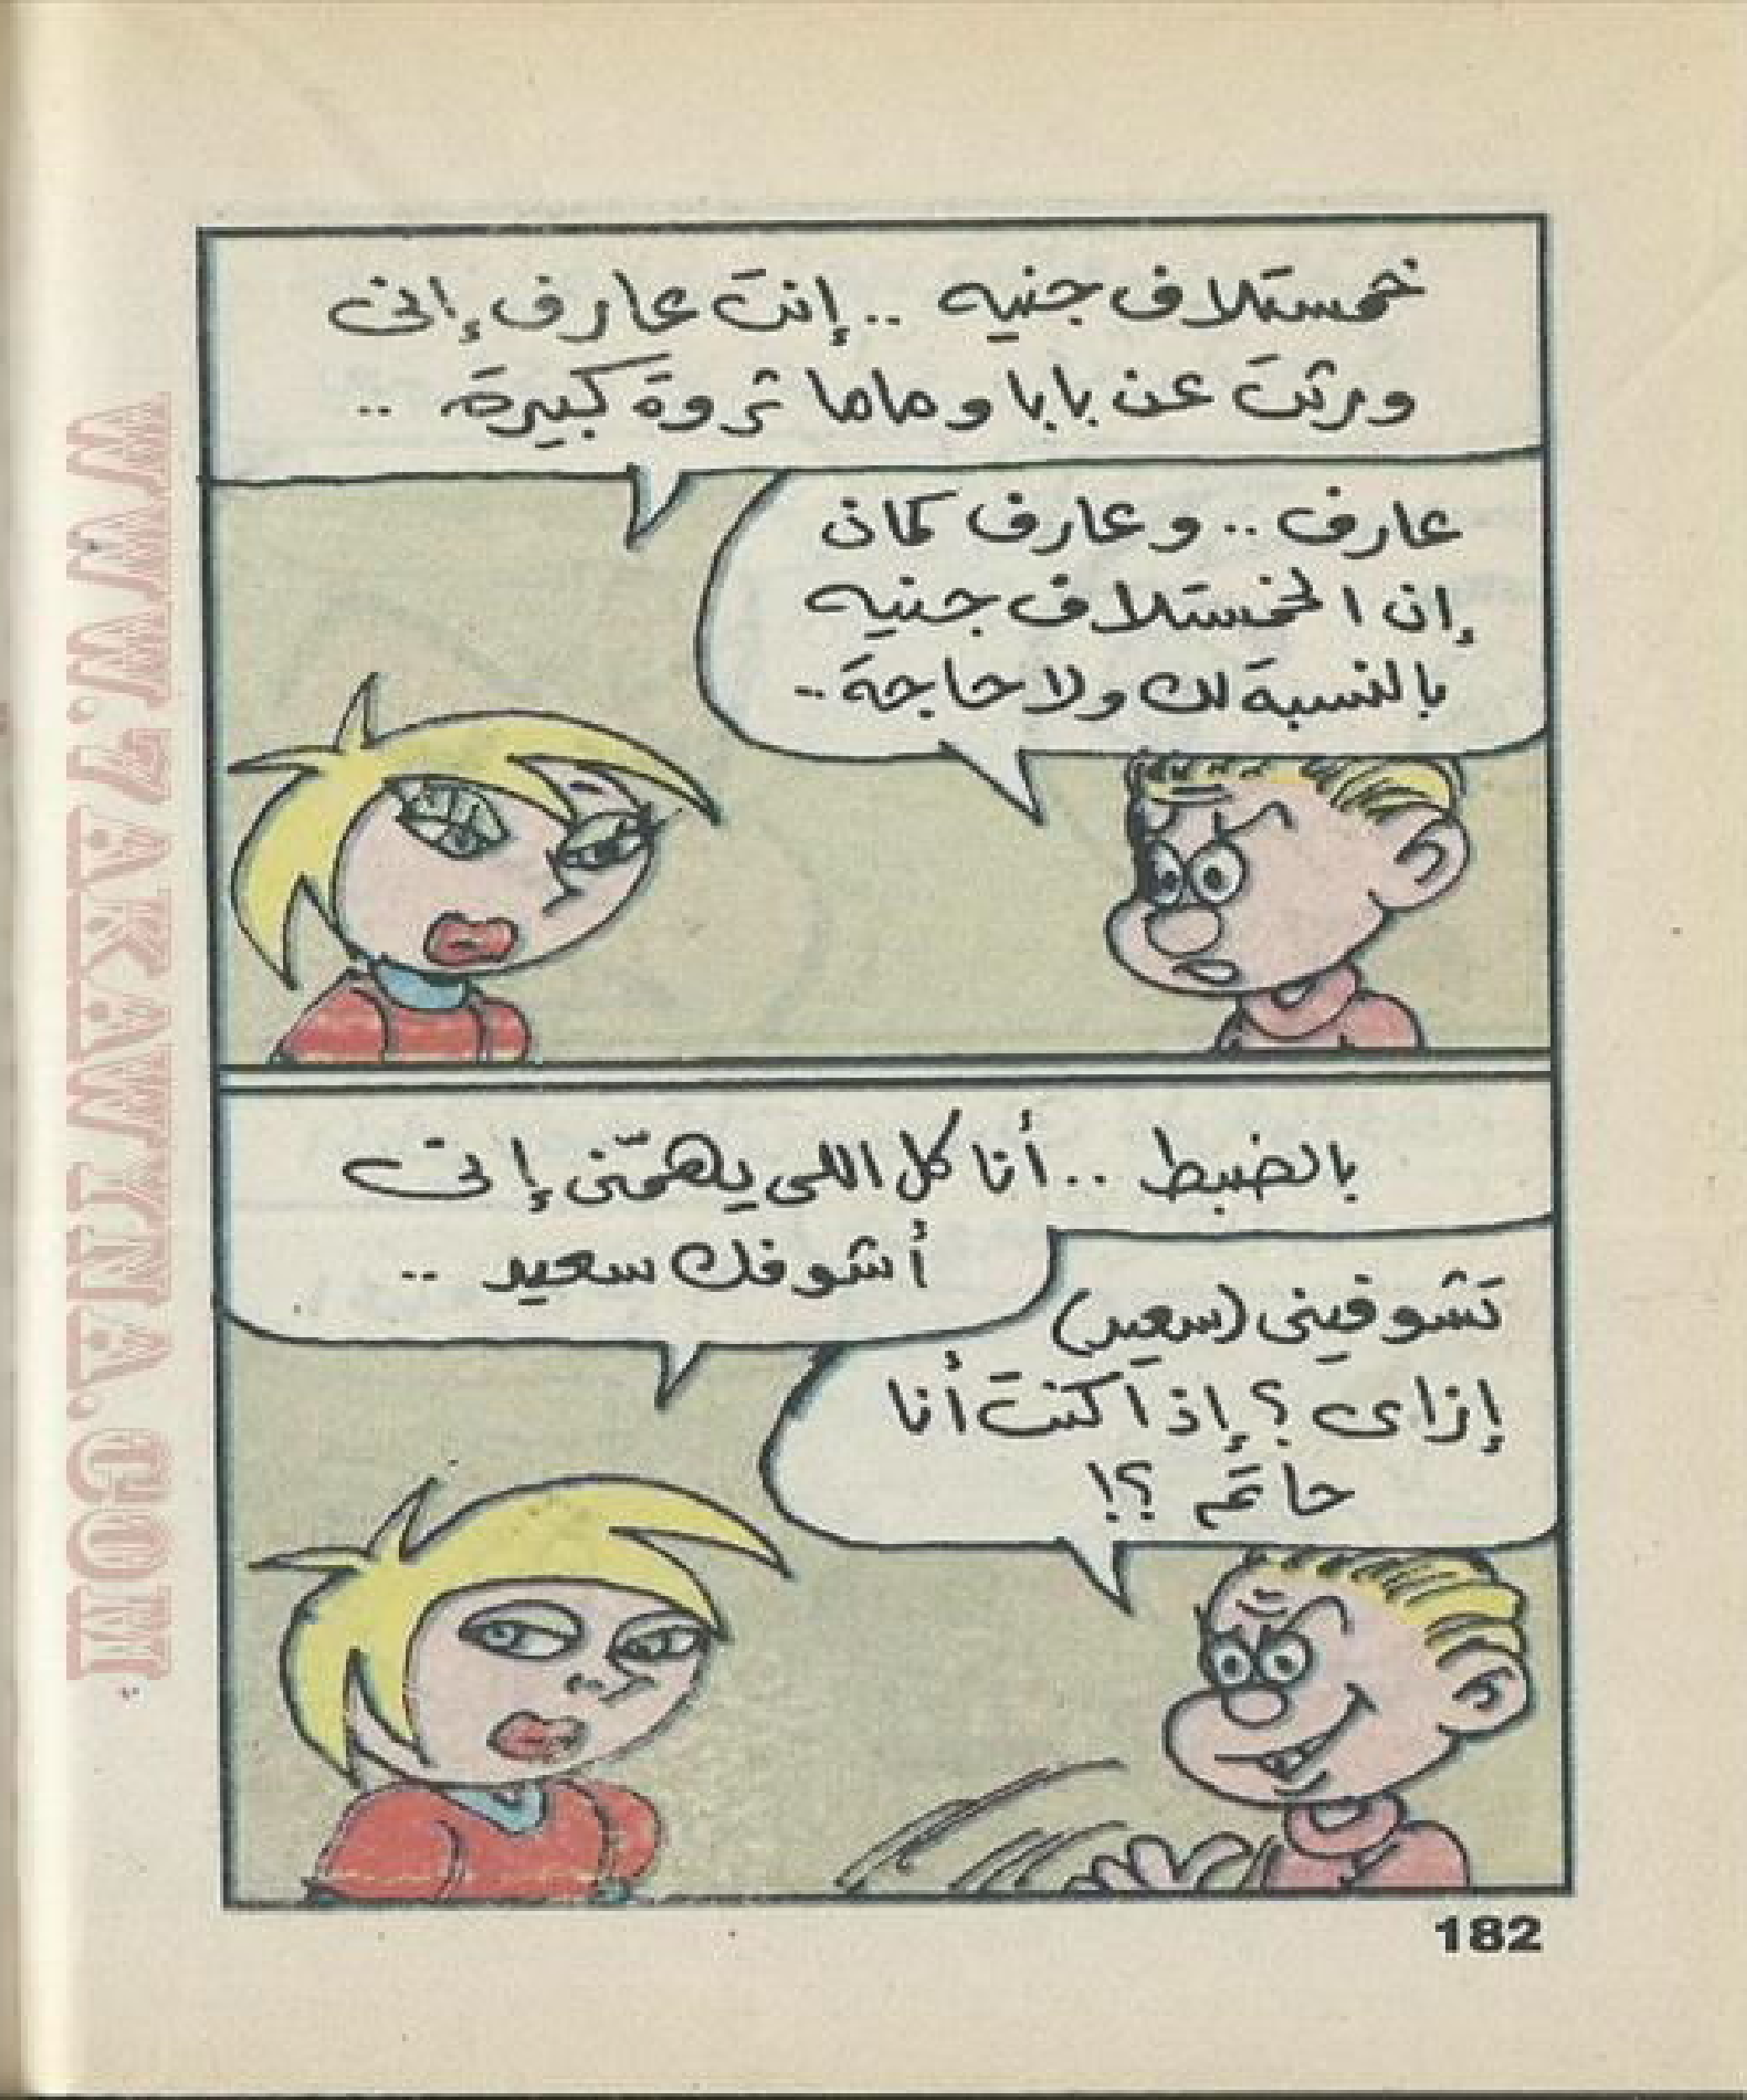 خمستلاف جنيه .. إنتَ عارف إنى
ورثتَ عن بابا وماما ثروة كبيرة ..
عارف .. وعارف كمان
إن الخمستلاف جنيه
بالنسبة لك ولا حاجة ..
بالضبط .. أنا كل اللى يهمّنى إنى
أشوفك سعيد ..
تشوفينى (سعيد)
إزاى ؟ إذا كنت أنا
حاتم ؟!
182